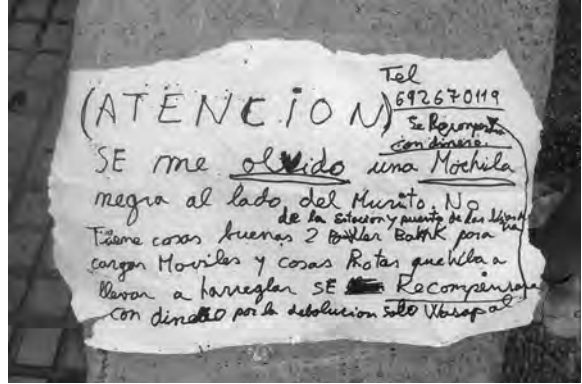 Tel
692670119
(ATENCION)
Se Recompensa
con dinero.
SE me olvido una Mochila
negra al lado del Murito. No
de la Estacion y puerto de Las
Tiene cosas buenas 2 Bank para
cargar Moviles y cosas Rotas que hiba a
llevar a harreglar SE Recompensara
con dinero por la debolucion Solo Wasap al